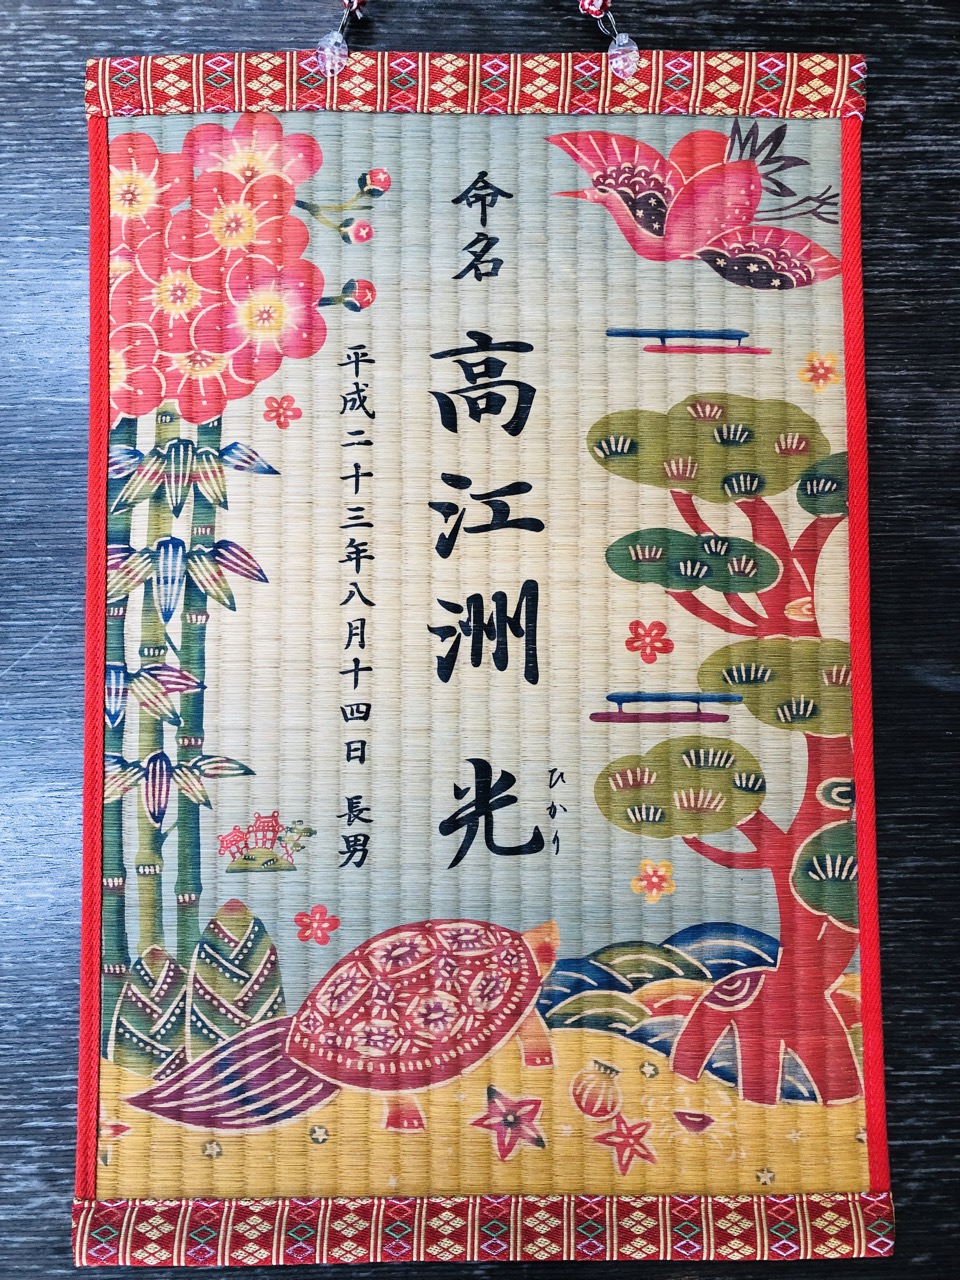 命名
高江洲 光
ひかり
平成二十三年八月十四日 長男